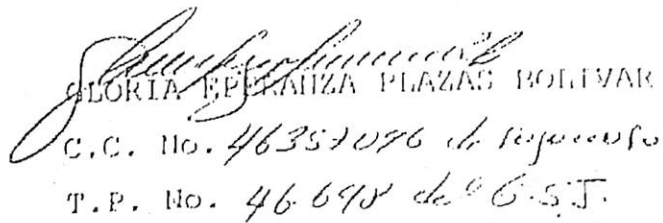 GLORIA EPERANZA PLAZAS BOLIVAR
C.C. No. 46357096 de Sogamoso
T.P. No. 46.698 del C.S.J.